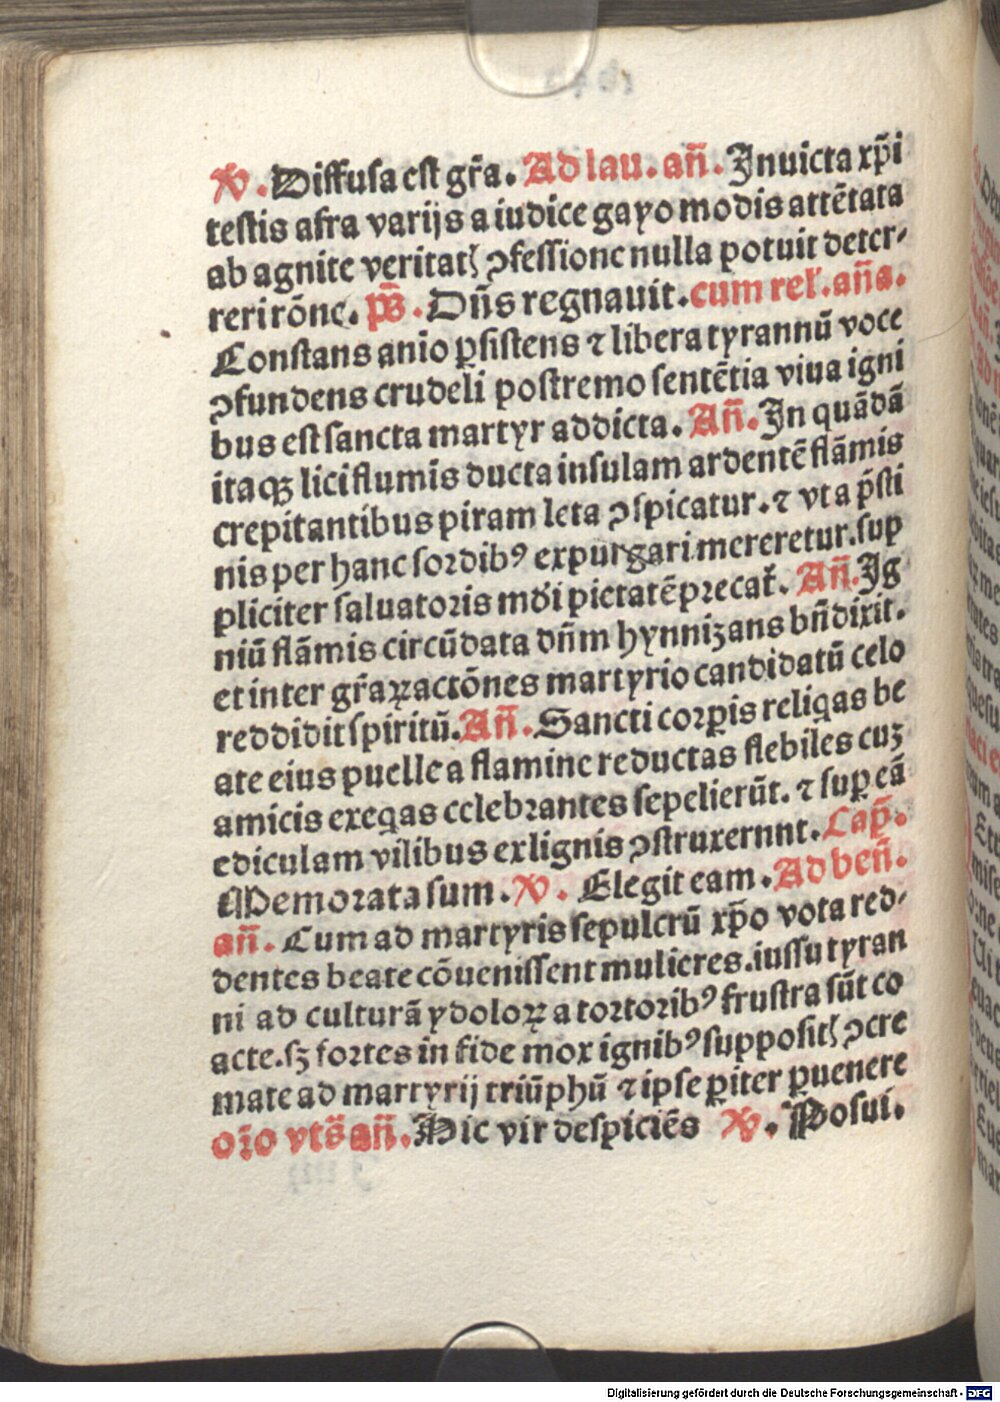 ℣. Diffusa est gr̄a. Ad lau. an̄. Inuicta xp̄i
testis afra varijs a iudice gayo modis attētata
ab agnite veritatꝭ ꝯfessione nulla potuit deter-
reri rōne. p̄s. Dn̄s regnauit. cum rel'. an̄a.
Constans anīo ꝑsistens ⁊ libera tyrannū voce
ꝯfundens crudeli postremo sentētia viua igni
bus est sancta martyr addicta. An̄. In quādā
itaqꝫ lici flumīs ducta insulam ardentē flāmis
crepitantibus piram leta ꝯspicatur. ⁊ vt a p̄sti
nis per hanc sordibꝰ expurgari mereretur. sup
pliciter saluatoris mūdi pietatē precat̄. An̄. Ig
niū flāmis circūdata dn̄m hynnizans bn̄dixit.
et inter gr̄aꝝ actōnes martyrio candidatū celo
reddidit spiritū. An̄. Sancti corꝑis reliqas be
ate eius puelle a flamine reductas flebiles cuꝫ
amicis exeqas celebrantes sepelierūt. ⁊ suꝑ eā
ediculam vilibus ex lignis ꝯstruxernnt. Cap̄.
Memorata sum. ℣. Elegit eam. Ad ben̄.
an̄. Cum ad martyris sepulcrū xp̄o vota red-
dentes beate cōuenissent mulieres. iussu tyran
ni ad culturā ydoloꝝ a tortoribꝰ frustra sūt co
acte. sꝫ fortes in fide mox ignibꝰ suppositꝭ ꝯcre
mate ad martyrij triūphū ⁊ ipse ꝑiter ꝑuenere
or̄o vts̄ an̄. Hic vir despiciēs ℣. Posui.
Digitalisierung gefördert durch die Deutsche Forschungsgemeinschaft - DFG